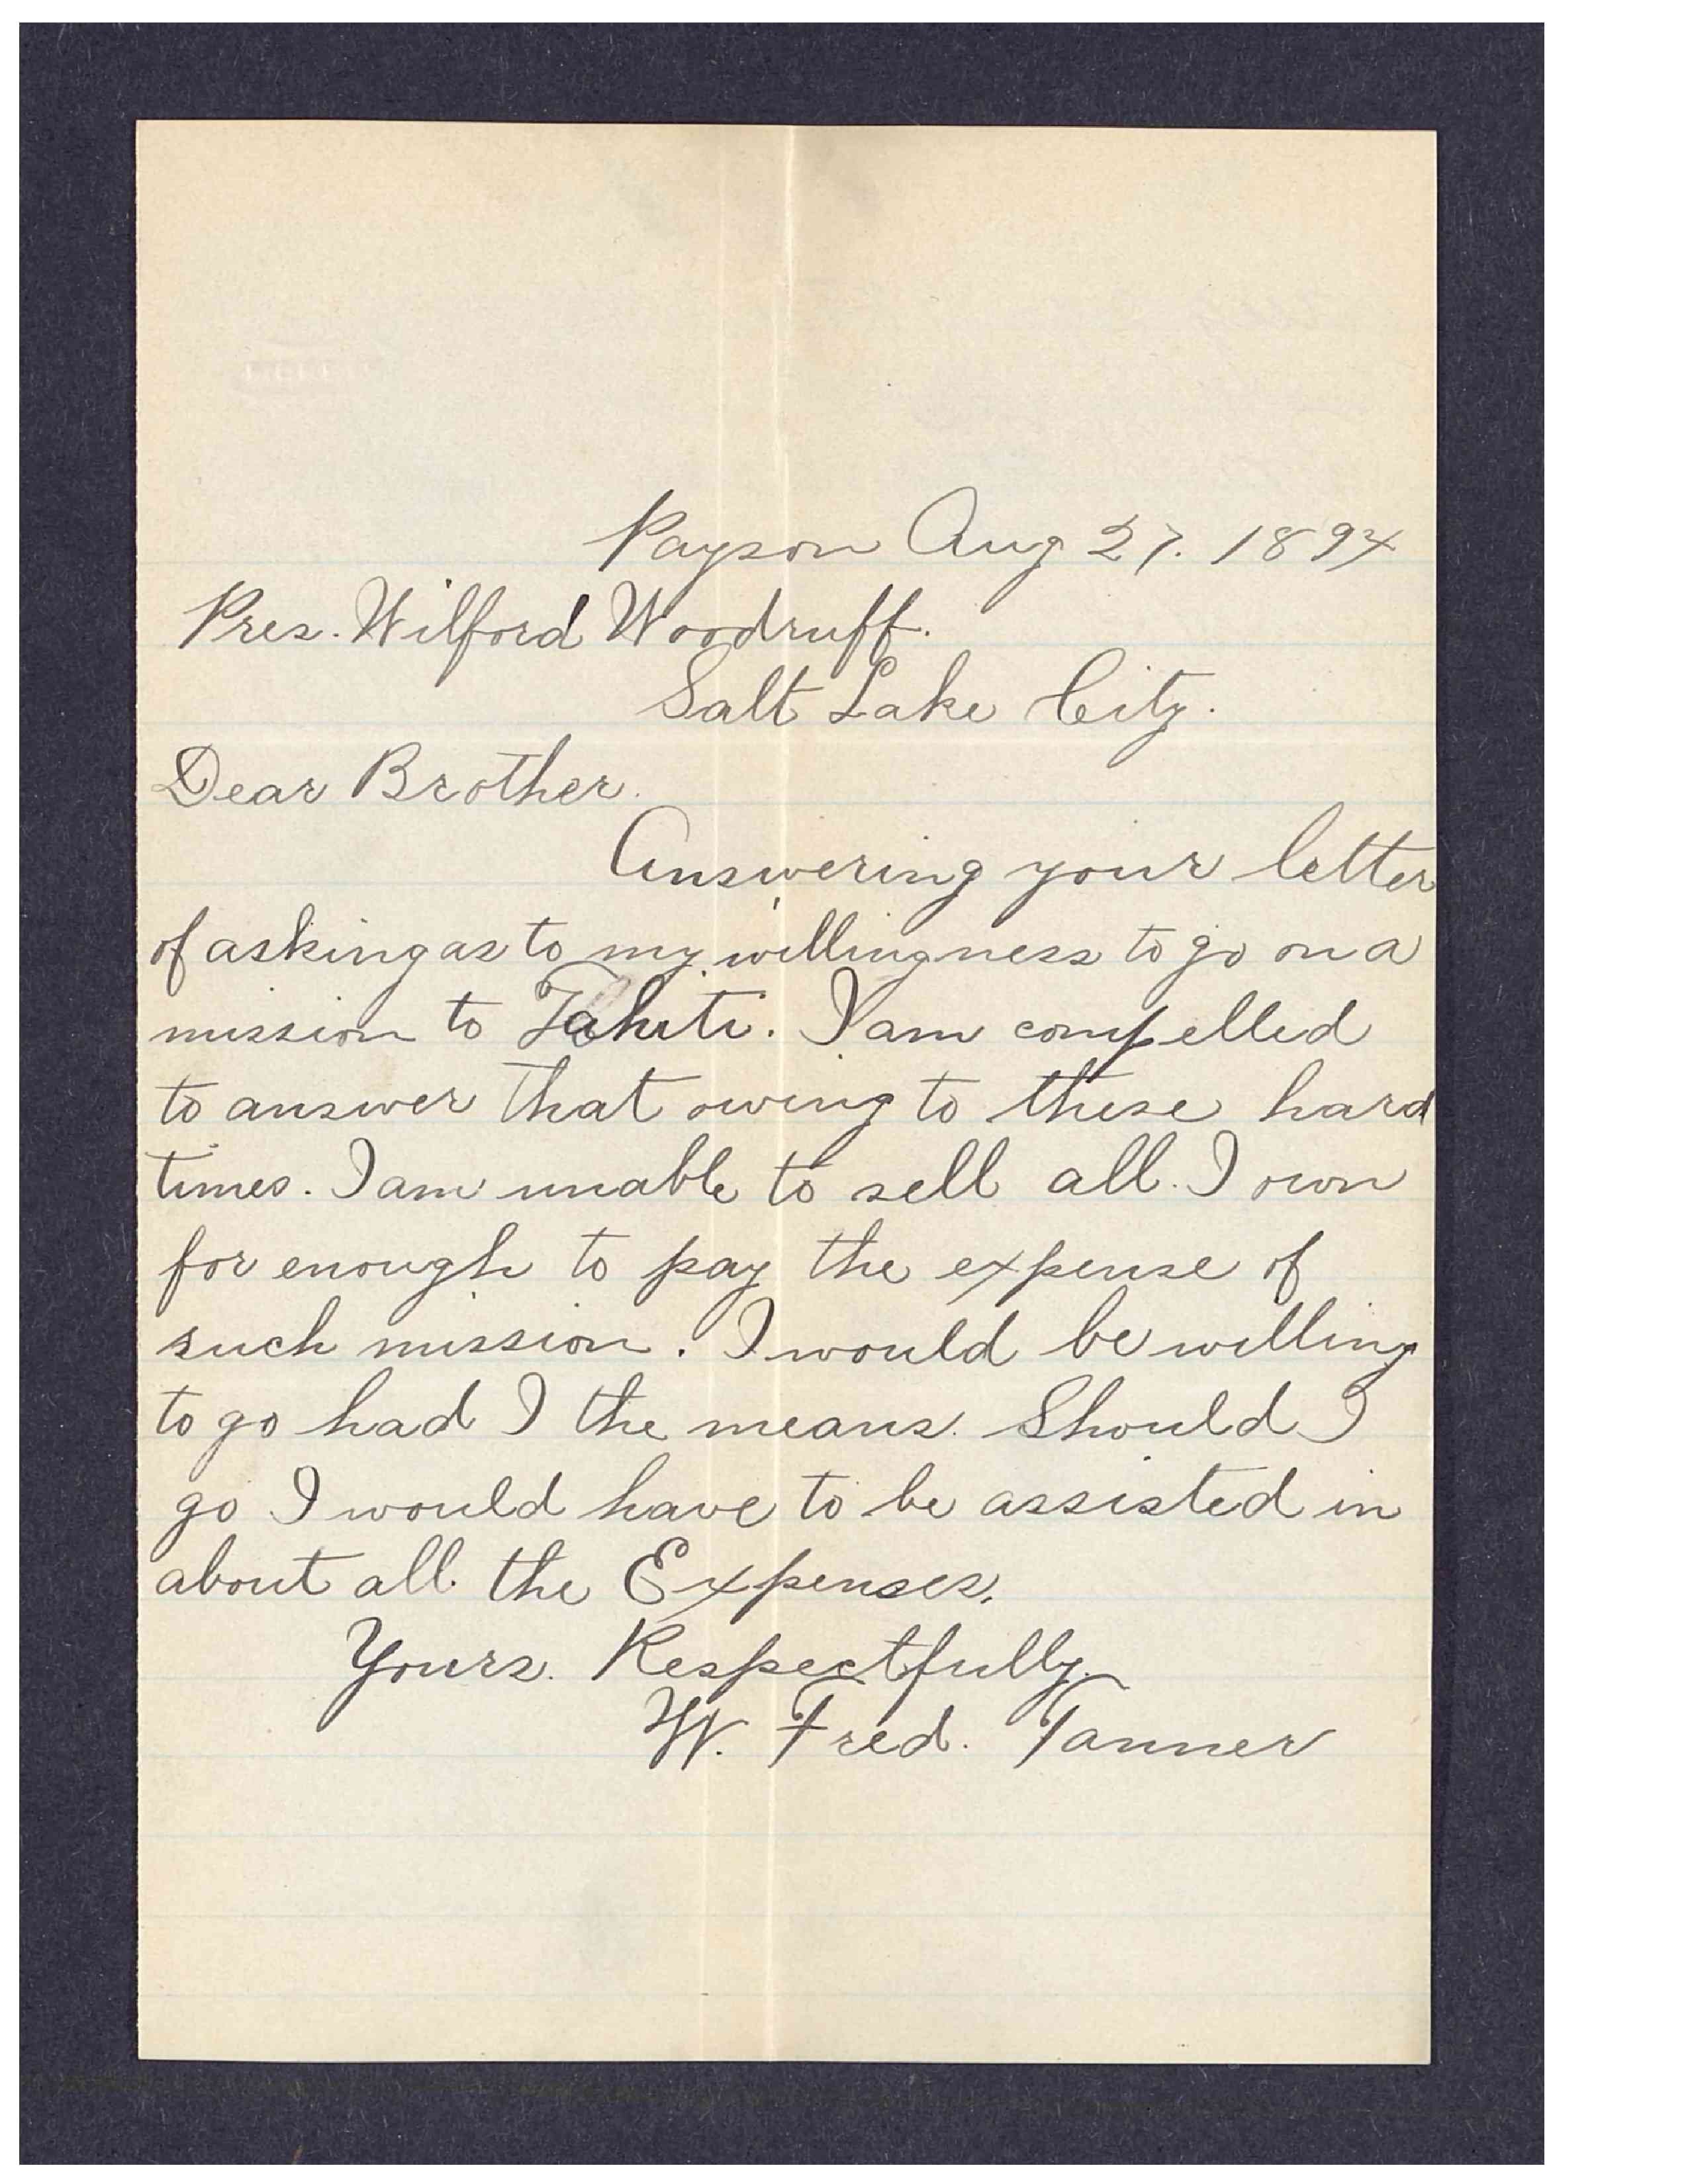 Payson Aug 27. 1894
Pres. Wilford Woodruff.
Salt Lake City.
Dear Brother.
Answering your letter
of asking as to my willingness to go on a
mission to Tahiti. I am compelled
to answer that owing to these hard
times. I am unable to sell all. I own
for enough to pay the expense of
such mission. I would be willing
to go had I the means. Should I
go I would have to be assisted in
about all the Expenses.
Yours. Respectfully.
W. Fred. Tanner